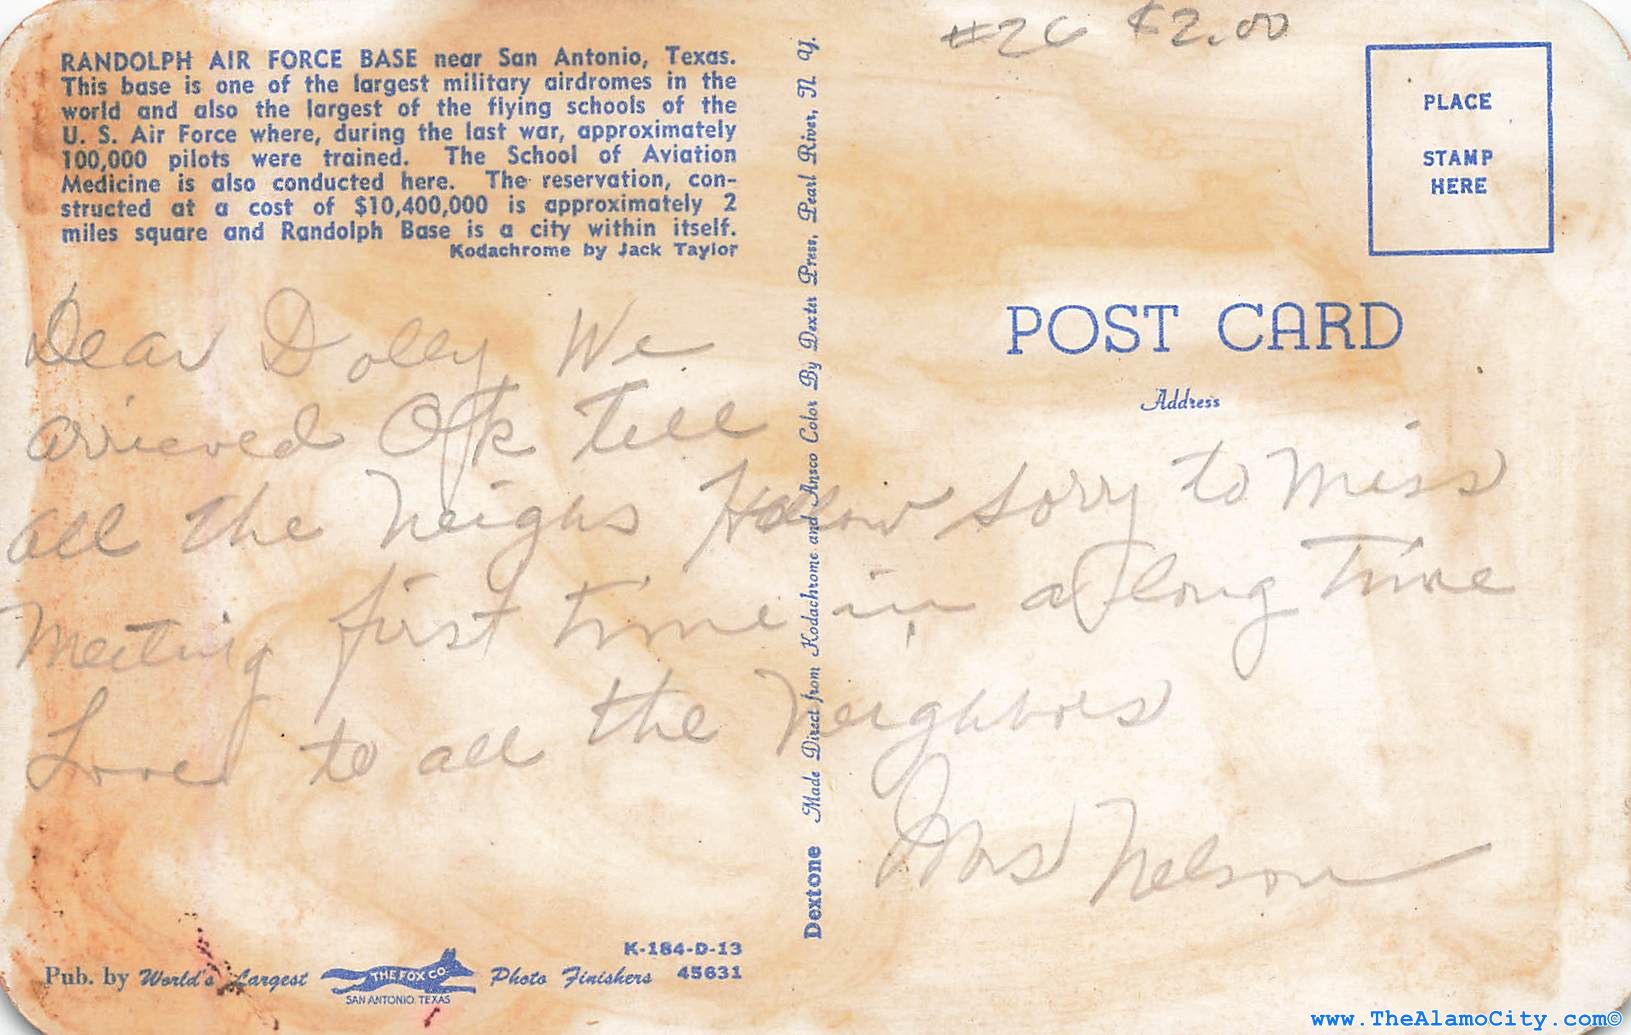 #26 $2.00
RANDOLPH AIR FORCE BASE near San Antonio, Texas.
This base is one of the largest military airdromes in the
world and also the largest of the flying schools of the
U. S. Air Force where, during the last war, approximately
100,000 pilots were trained. The School of Aviation
Medicine is also conducted here. The reservation, con-
structed at a cost of $10,400,000 is approximately 2
miles square and Randolph Base is a city within itself.
Kodachrome by Jack Taylor
Dear Dolly We
arrieved OK tell
all the Neighs Hallow sorry to miss
Meeting first time in a long time
Love to all the Neighbors
Mrs Nelson
K-184-D-13
45631
Pub. by World's Largest THE FOX CO. Photo Finishers
SAN ANTONIO, TEXAS
Dextone Made Direct from Kodachrome and Ansco Color By Dexter Press, Pearl River, N. Y.
PLACE
STAMP
HERE
POST CARD
Address
www.TheAlamoCity.com©